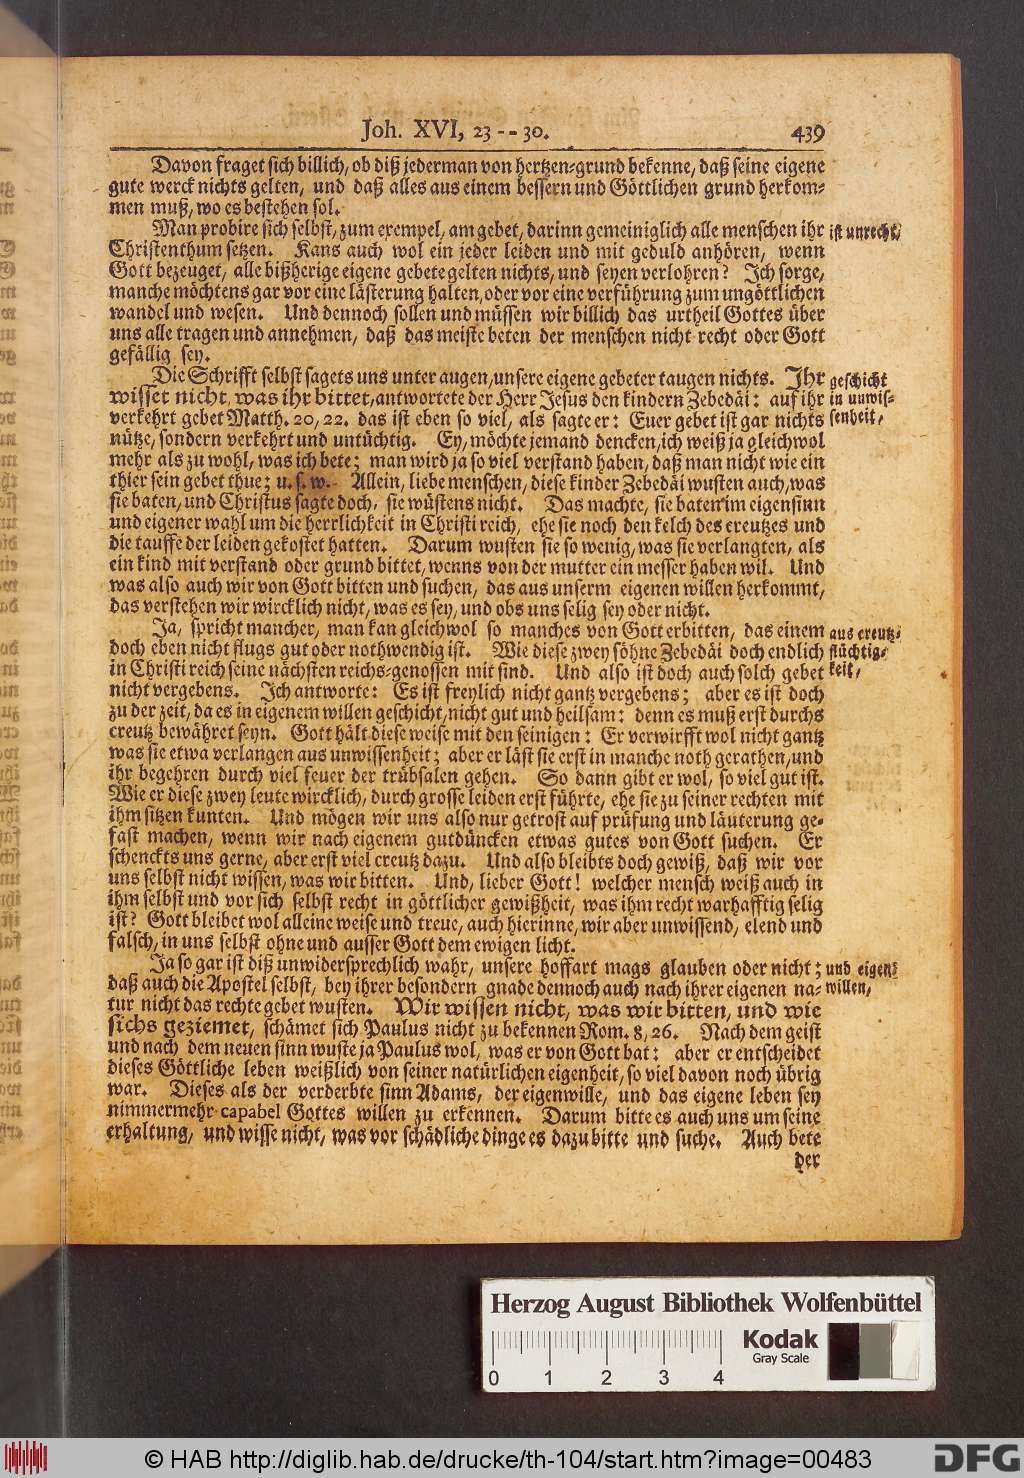 Joh. XVI, 23 -- 30. 439
Davon fraget sich billich, ob diß jederman von hertzen-grund bekenne, daß seine eigene
gute werck nichts gelten, und daß alles aus einem bessern und Göttlichen grund herkom-
men muß, wo es bestehen sol.
Man probire sich selbst, zum exempel, am gebet, darinn gemeiniglich alle menschen ihr
ist unrecht,
Christenthum setzen. Kans auch wol ein jeder leiden und mit geduld anhören, wenn
Gott bezeuget, alle bißherige eigene gebete gelten nichts, und seyen verlohren? Ich sorge,
manche möchtens gar vor eine lästerung halten, oder vor eine verführung zum ungöttlichen
wandel und wesen. Und dennoch sollen und müssen wir billich das urtheil Gottes über
uns alle tragen und annehmen, daß das meiste beten der menschen nicht recht oder Gott
gefällig sey.
Die Schrifft selbst sagets uns unter augen, unsere eigene gebeter taugen nichts. Ihr
geschicht
wisset nicht, was ihr bittet, antwortete der Herr Jesus den kindern Zebedäi: auf ihr
in unwis-
verkehrt gebet Matth. 20, 22. das ist eben so viel, als sagte er: Euer gebet ist gar nichts
senheit,
nütze, sondern verkehrt und untüchtig. Ey, möchte jemand dencken, ich weiß ja gleichwol
mehr als zu wohl, was ich bete; man wird ja so viel verstand haben, daß man nicht wie ein
thier sein gebet thue; u. s. w. Allein, liebe menschen, diese kinder Zebedäi wusten auch, was
sie baten, und Christus sagte doch, sie wüstens nicht. Das machte, sie baten im eigensinn
und eigener wahl um die herrlichkeit in Christi reich, ehe sie noch den kelch des creutzes und
die tauffe der leiden gekostet hatten. Darum wusten sie so wenig, was sie verlangten, als
ein kind mit verstand oder grund bittet, wenns von der mutter ein messer haben wil. Und
was also auch wir von Gott bitten und suchen, das aus unserm eigenen willen herkommt,
das verstehen wir wircklich nicht, was es sey, und obs uns selig sey oder nicht.
Ja, spricht mancher, man kan gleichwol so manches von Gott erbitten, das einem
aus creutz-
doch eben nicht flugs gut oder nothwendig ist. Wie diese zwey söhne Zebedäi doch endlich
flüchtig-
in Christi reich seine nächsten reichs-genossen mit sind. Und also ist doch auch solch gebet
keit,
nicht vergebens. Ich antworte: Es ist freylich nicht gantz vergebens; aber es ist doch
zu der zeit, da es in eigenem willen geschicht, nicht gut und heilsam: denn es muß erst durchs
creutz bewähret seyn. Gott hält diese weise mit den seinigen: Er verwirfft wol nicht gantz
was sie etwa verlangen aus unwissenheit; aber er läst sie erst in manche noth gerathen, und
ihr begehren durch viel feuer der trübsalen gehen. So dann gibt er wol, so viel gut ist.
Wie er diese zwey leute wircklich, durch grosse leiden erst führte, ehe sie zu seiner rechten mit
ihm sitzen kunten. Und mögen wir uns also nur getrost auf prüfung und läuterung ge-
fast machen, wenn wir nach eigenem gutdüncken etwas gutes von Gott suchen. Er
schenckts uns gerne, aber erst viel creutz dazu. Und also bleibts doch gewiß, daß wir vor
uns selbst nicht wissen, was wir bitten. Und, lieber Gott! welcher mensch weiß auch in
ihm selbst und vor sich selbst recht in göttlicher gewißheit, was ihm recht warhafftig selig
ist? Gott bleibet wol alleine weise und treue, auch hierinne, wir aber unwissend, elend und
falsch, in uns selbst ohne und ausser Gott dem ewigen licht.
Ja so gar ist diß unwidersprechlich wahr, unsere hoffart mags glauben oder nicht;
und eigen-
daß auch die Apostel selbst, bey ihrer besondern gnade dennoch auch nach ihrer eigenen na-
willen,
tur nicht das rechte gebet wusten. Wir wissen nicht, was wir bitten, und wie
sichs geziemet, schämet sich Paulus nicht zu bekennen Rom. 8, 26. Nach dem geist
und nach dem neuen sinn wuste ja Paulus wol, was er von Gott bat: aber er entscheidet
dieses Göttliche leben weißlich von seiner natürlichen eigenheit, so viel davon noch übrig
war. Dieses als der verderbte sinn Adams, der eigenwille, und das eigene leben sey
nimmermehr capabel Gottes willen zu erkennen. Darum bitte es auch uns um seine
erhaltung, und wisse nicht, was vor schädliche dinge es dazu bitte und suche. Auch bete
der
Herzog August Bibliothek Wolfenbüttel
Kodak
Gray Scale
0 1 2 3 4
© HAB http://diglib.hab.de/drucke/th-104/start.htm?image=00483
DFG